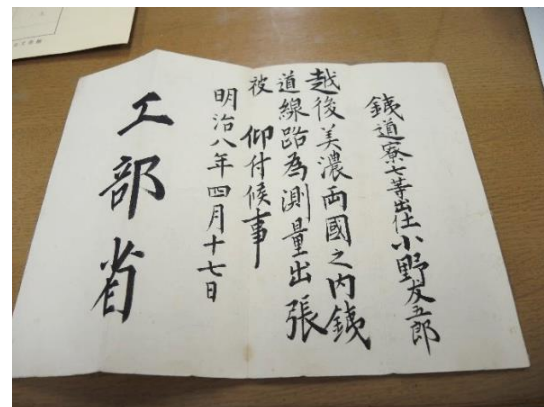 鉄道寮七等出仕小野友五郎
越後美濃両國之内鉄
道線路為測量出張
被 仰付候事
明治八年四月十七日
工部省